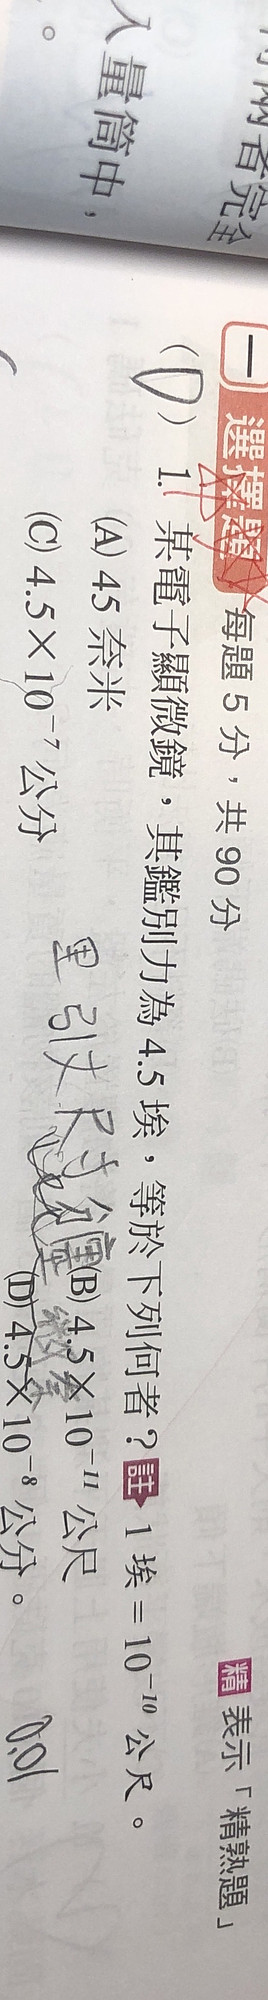 何兩者完全
入量筒中，
。
一 選擇題 每題 5 分，共 90 分
精 表示「精熟題」
(D) 1. 某電子顯微鏡，其鑑別力為 4.5 埃，等於下列何者？註 1 埃＝10⁻¹⁰ 公尺。
(A) 45 奈米 (B) 4.5×10⁻¹¹ 公尺
(C) 4.5×10⁻⁷ 公分 (D) 4.5×10⁻⁸ 公分。
里引丈尺寸分釐
0.01